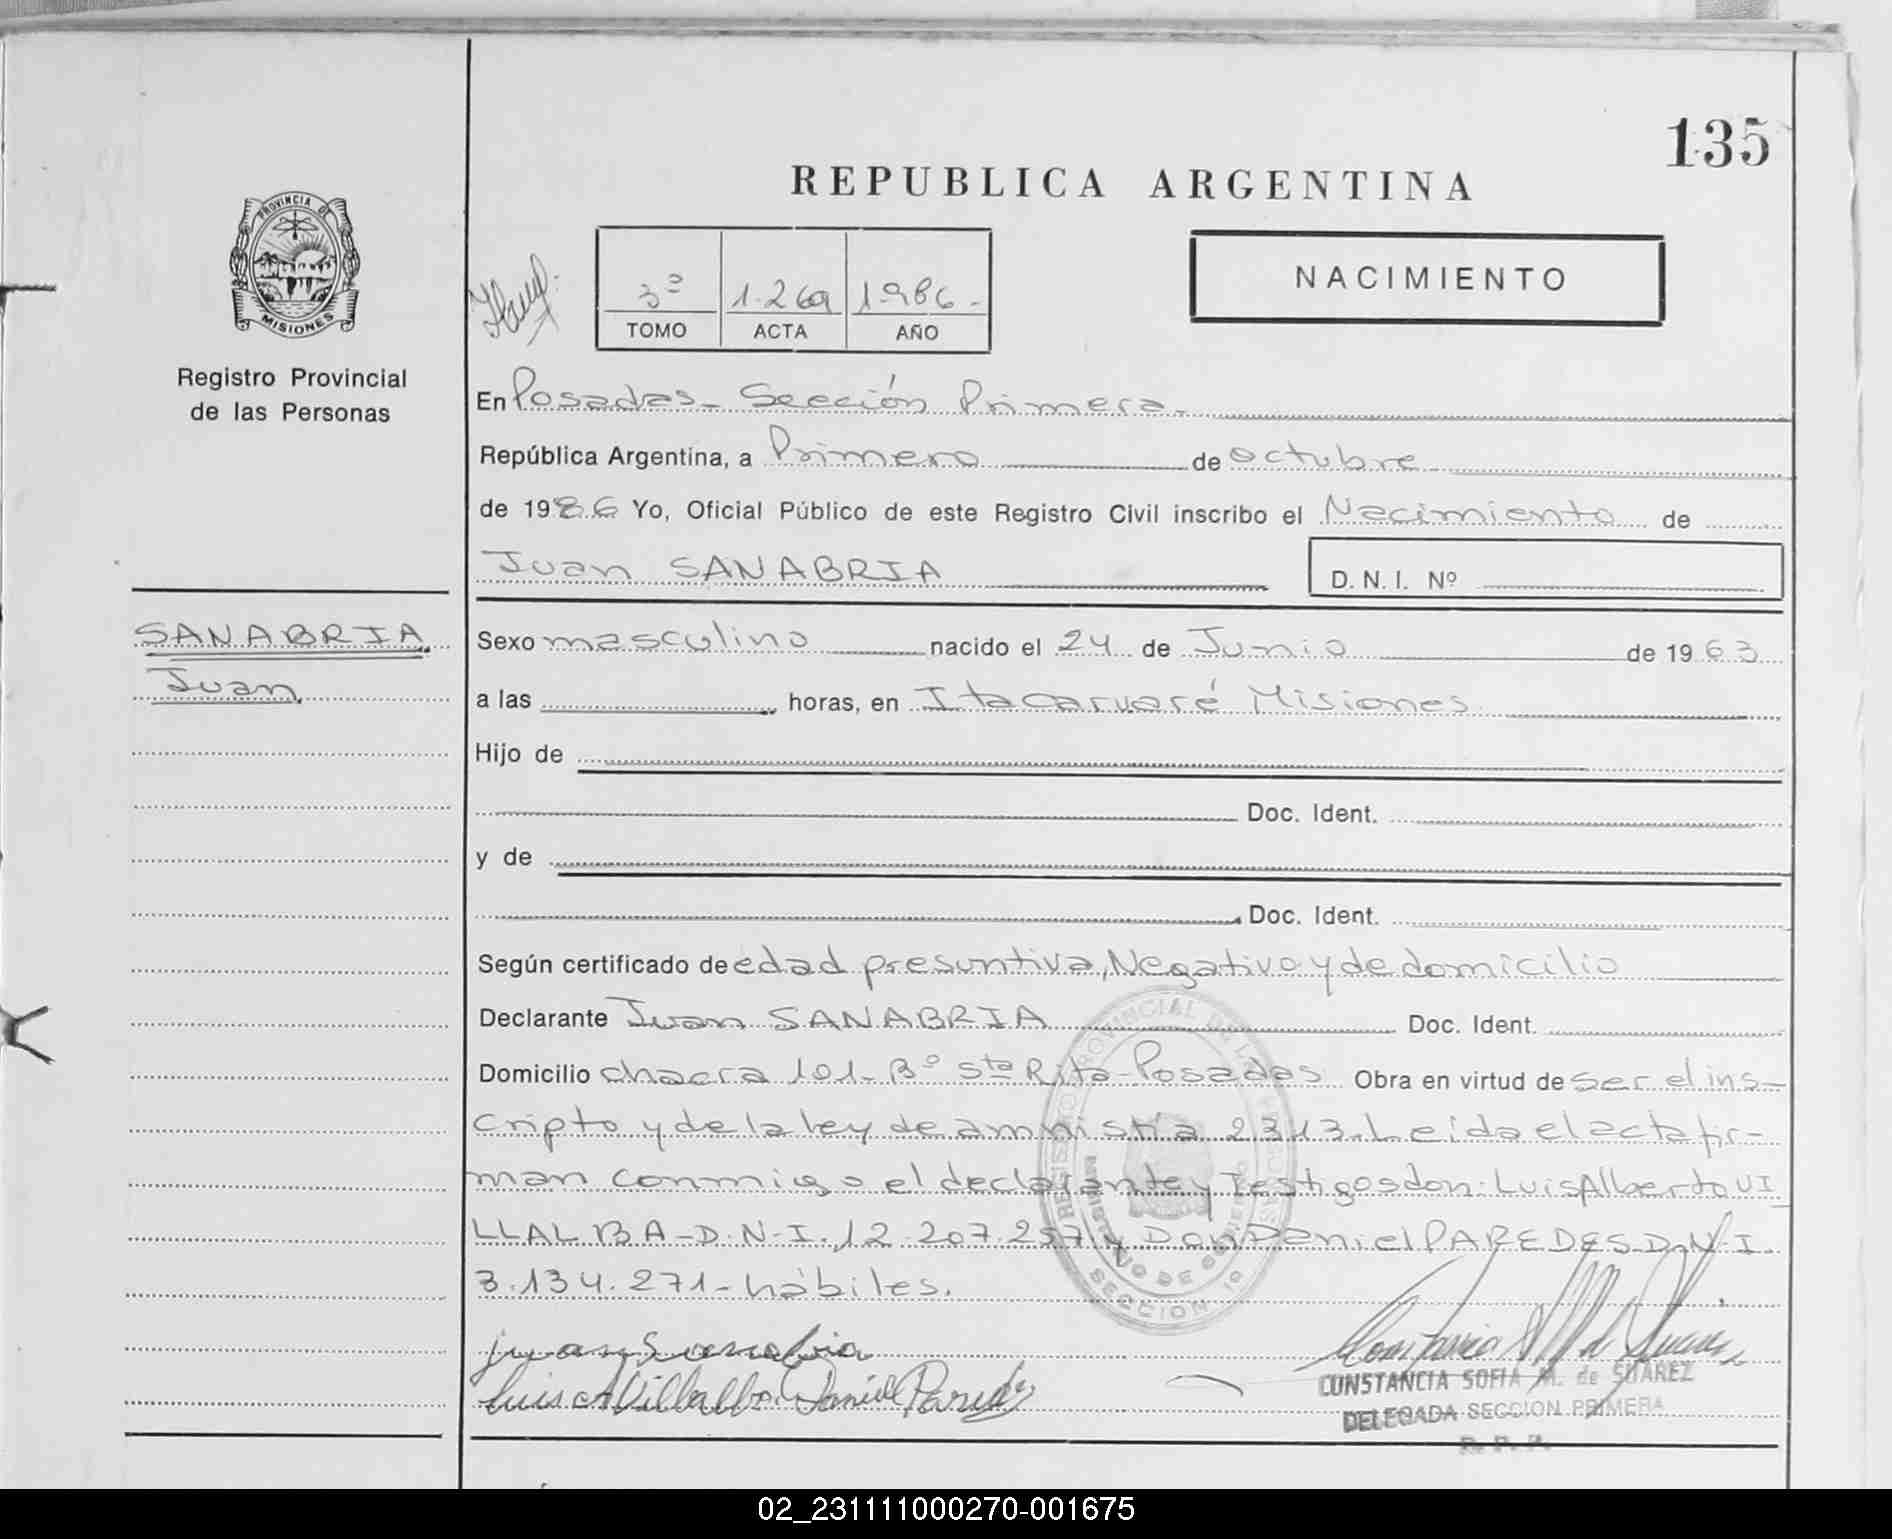 135
REPUBLICA ARGENTINA
PROVINCIA DE
MISIONES
Registro Provincial
de las Personas
3º 1.269 1.986.-
TOMO ACTA AÑO
NACIMIENTO
En Posadas- Sección Primera.
República Argentina, a Primero de octubre
de 1986 Yo, Oficial Público de este Registro Civil inscribo el Nacimiento de
Juan SANABRIA D. N. I. Nº
SANABRIA,
Juan,
Sexo masculino nacido el 24 de Junio de 1963
a las horas, en Itacaruaré Misiones
Hijo de
Doc. Ident.
y de
Doc. Ident.
Según certificado de edad presuntiva, Negativo y de domicilio
Declarante Juan SANABRIA Doc. Ident.
Domicilio chacra 101- Bº Sta Rita-Posadas Obra en virtud de ser el ins-
cripto y de la ley de amnistía 2313. Leida el acta fir-
man conmigo el declarante y Testigos don: Luis Alberto VI
LLALBA-D.N.I. 12.207.257 y Don Daniel PAREDES D.N.I.
3.134.271- hábiles.
REGISTRO PROVINCIAL DE LAS PERSONAS
MINISTERIO DE GOBIERNO
SECCION 1º
juan Sanabria
Luis A Villalba Daniel Paredes
CONSTANCIA SOFIA M. de SUAREZ
DELEGADA SECCION PRIMERA
R. P. P.
02_231111000270-001675